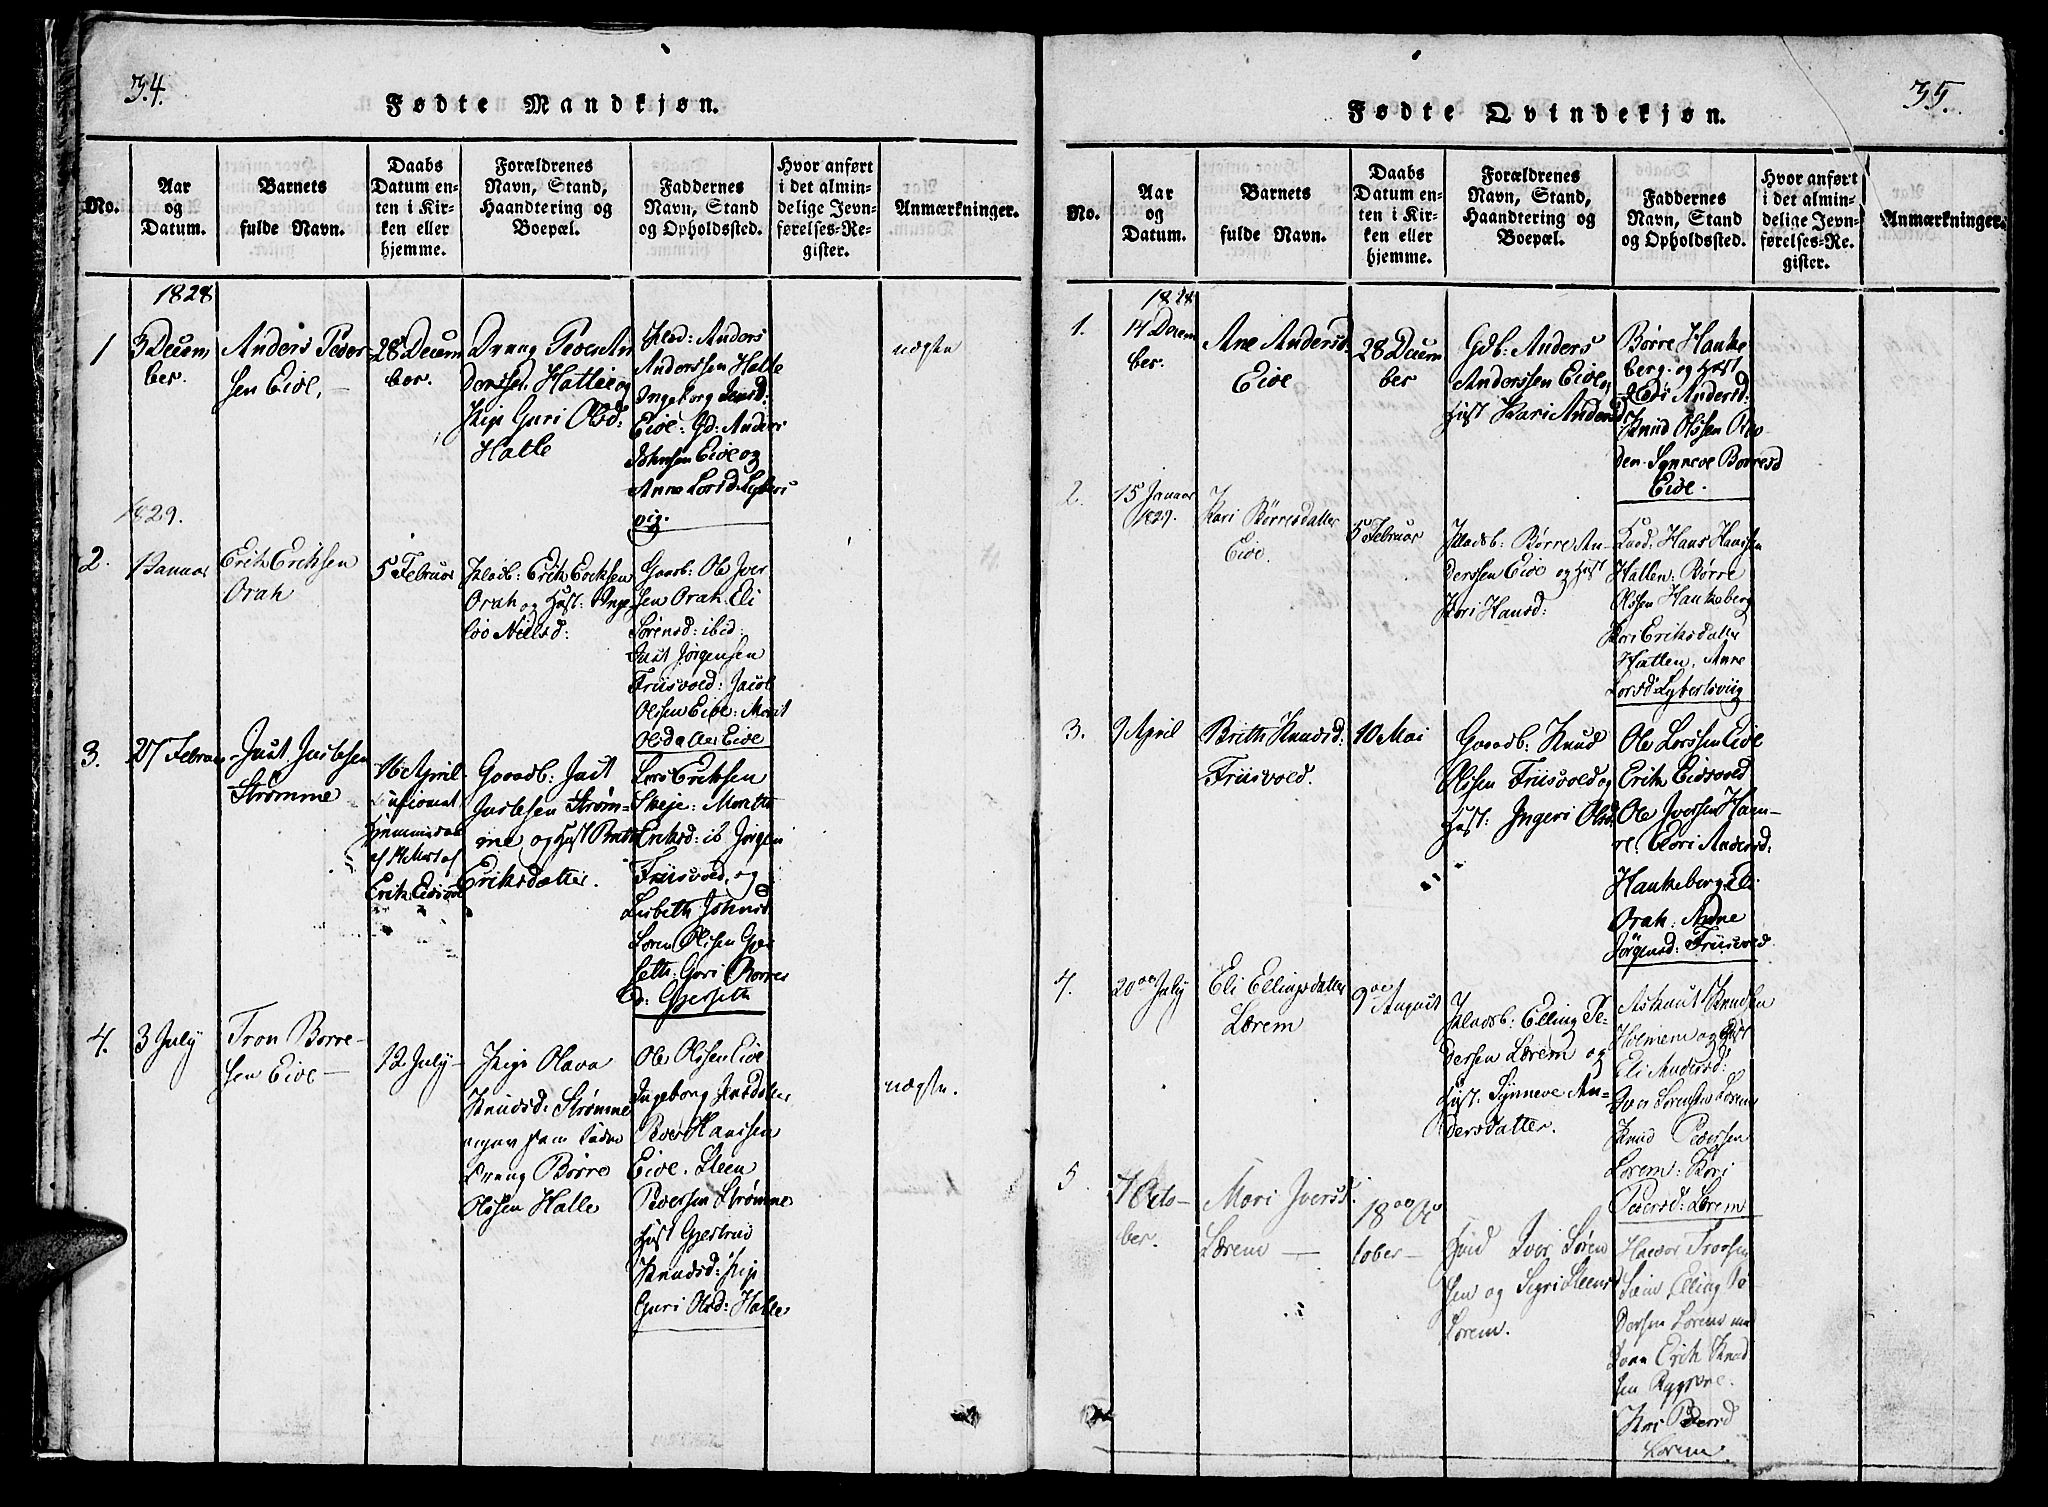 34.
Fødte Mandkjøn.
No.
Aar
og
Datum.
Barnets
fulde Navn.
Daabs
Datum en-
ten i Kir-
ken eller
hjemme.
Forældrenes
Navn, Stand,
Haandtering og
Boepæl.
Faddernes
Navn, Stand
og Opholdssted.
Hvor anført
i det almin-
delige Jevn-
førelses-Re-
gister.
Anmærkninger.
1828
1
3 Decem
ber.
Anders Peder-
sen Eide,
28 Decem
ber.
Dreng Peder An
derssen Hatle og
Pige Guri Olsd:
Hatle
Anders
Anderssen Hatle
Ingeborg Jensd:
Eide: Gd: Anders
Johnsen Eide og
Anne Larsd Lybers
vig.
uægte
1829.
2.
1 Januar
Erik Eriksen
Orah
5 Februar
Pladsb: Erik Eriksen
Orah og Hust: Inge
Nielsd:
Gaardb: Ole Iver
sen Orah. Eli
Sørensd: ibid:
Just Jørgensen
Friisvold: Jacob
Olssen Eide: Marit
Olsdatter Eide
3.
27 Februar
Just Justesen
Strømme
16 April
af
Erik Eidsvold
Gaardb: Just
Justesen Strøm-
me og Hust Brith
Eriksdatter.
Lars Eriksen
Skeje: Marith
Eriksd: ib Jørgen
Friisvold og
Lisbeth Johnsd
Søren Olssen Gjer
seth: Guri Børres
d: Gjerseth
4.
3 July
Tron Børre-
sen Eide
12 July
Pige Olava
Knudsd: Strømme
Dreng Børre
Olssen Hatle
Ole Olssen Eide
Ingeborg Jensdatter
Peder Hanssen
Eide. Steen
Pedersen Strømme
Hust Gjertrud
Knudsd: Pige
Guri Olsd: Hatle
uægte.
35.
Fødte Qvindekjøn.
No.
Aar
og
Datum.
Barnets
fulde Navn.
Daabs
Datum en-
ten i Kir-
ken eller
hjemme.
Forældrenes
Navn, Stand,
Haandtering og
Boepæl.
Faddernes
Navn, Stand
og Opholdssted.
Hvor anført
i det almin-
delige Jevn-
førelses-Re-
gister.
Anmærkninger.
1828
1.
14 Decem
ber.
Ane Andersd.
Eide
28 Decem
ber
Gdb: Anders
Anderssen Eide og
Hust Kari Andersd
Børre Hanke
berg. og Hust
Andersd:
Knud Olssen
den. Synneve Børresd
Eide.
2.
15 Januar
1829.
Kari Børresdatter
Eide.
5 Februar
Pladsb: Børre An-
derssen Eide og Hust
Kari Hansd:
Hans Hanssen
Hatlen: Børre
Olssen Hankeberg
Kari Eriksdatter
Hatlen. Anne
Larsd Lybertsviig
3.
9 April
Brith Knudsd:
Friisvold.
10 Mai
Gaardb: Knud
Olssen Friisvold og
Hust: Ingeri Olsd.
Ole Larssen Eide
Erik Eidsvold
Ole Iversen Ham-
re. Andersd:
Hankeberg Eli
Orah: Anne
Jørgensd: Friisvold.
4.
20de July
Eli Ellingsdatter
Lærem
9de August
Pladsb: Elling Pe-
dersen Lærem og
Hust: Synneve An-
dersdatter.
Aslaut Knudsen
Holmem og Hust
Eli Andersd:
Iver Sørensen Lærem
Knud Pedersen
Lærem: Kari
Pedersd: Lærem
5
7 Octo-
ber.
Mari Iversd.
Lærem
18de Oc
tober
Iver Søren
sen og Sigri Steensd
Lærem.
Elling Pe-
dersen Lærem
Erik Knud
sen
Kari Pedersd
Lærem.